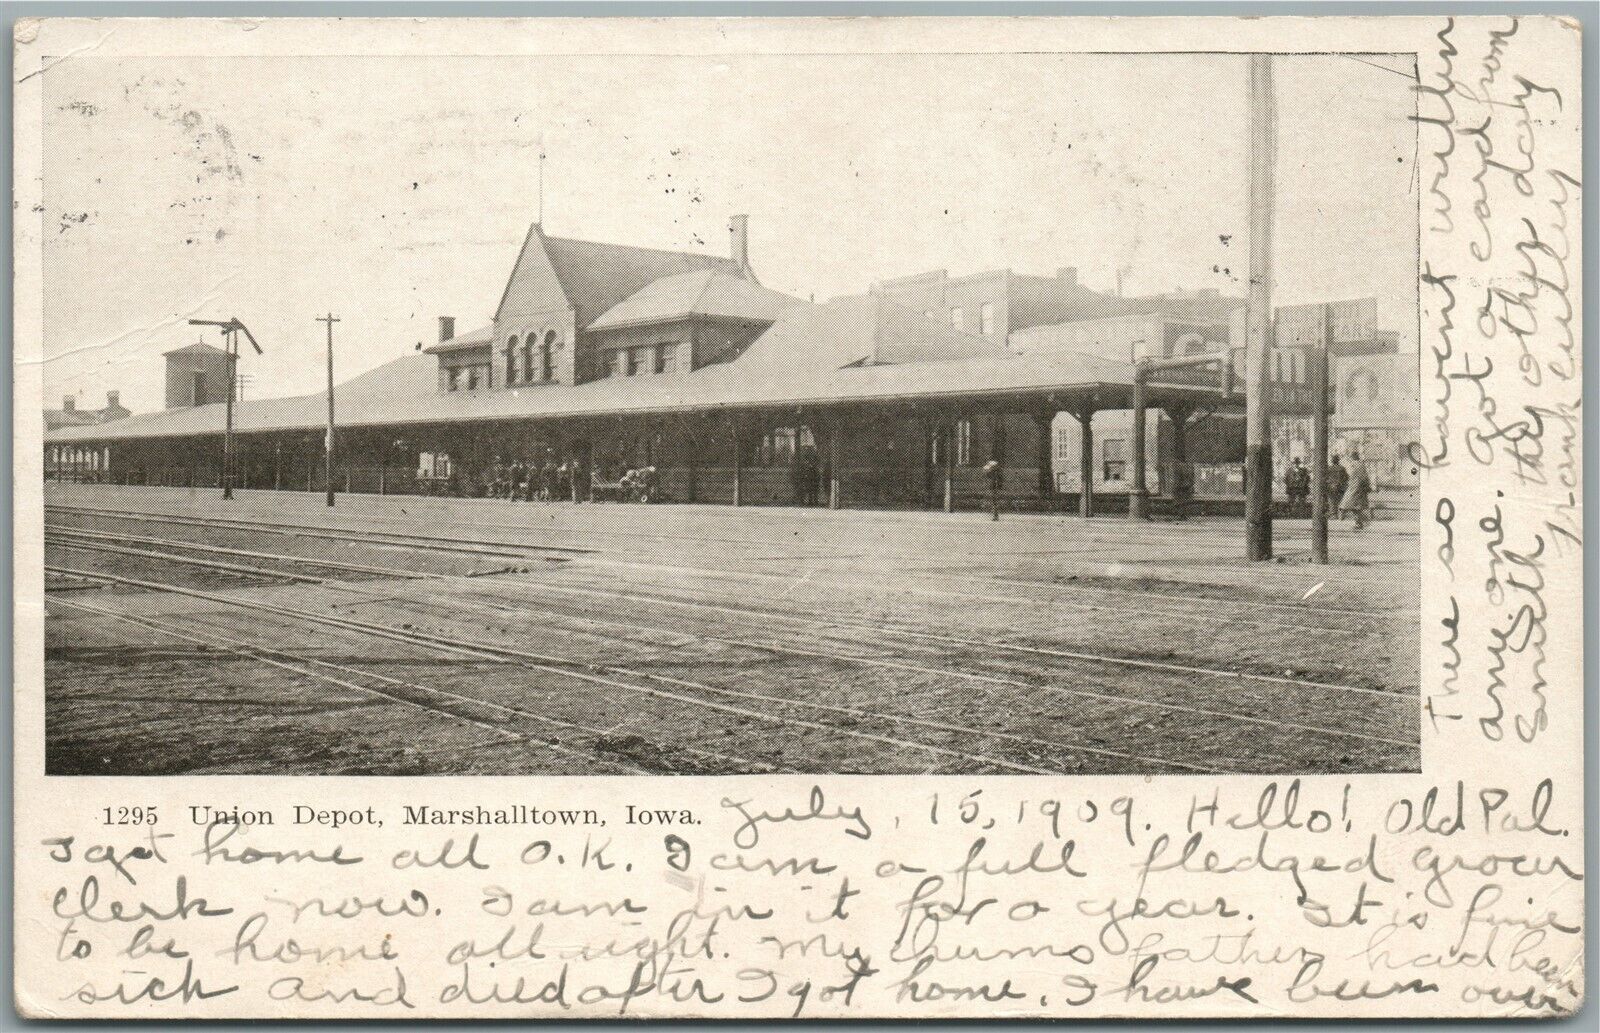 1295 Union Depot, Marshalltown, Iowa.
July, 15, 1909. Hello! Old Pal.
I got home all O.K. I am a full fledged grocer
clerk now. I am in it for a year. It is fine
to be home all right. My chums father had been
sick and died after I got home. I have been over
There so havent written
any one. Got a card from
Smith the other day
Frank Curley
THE CARS